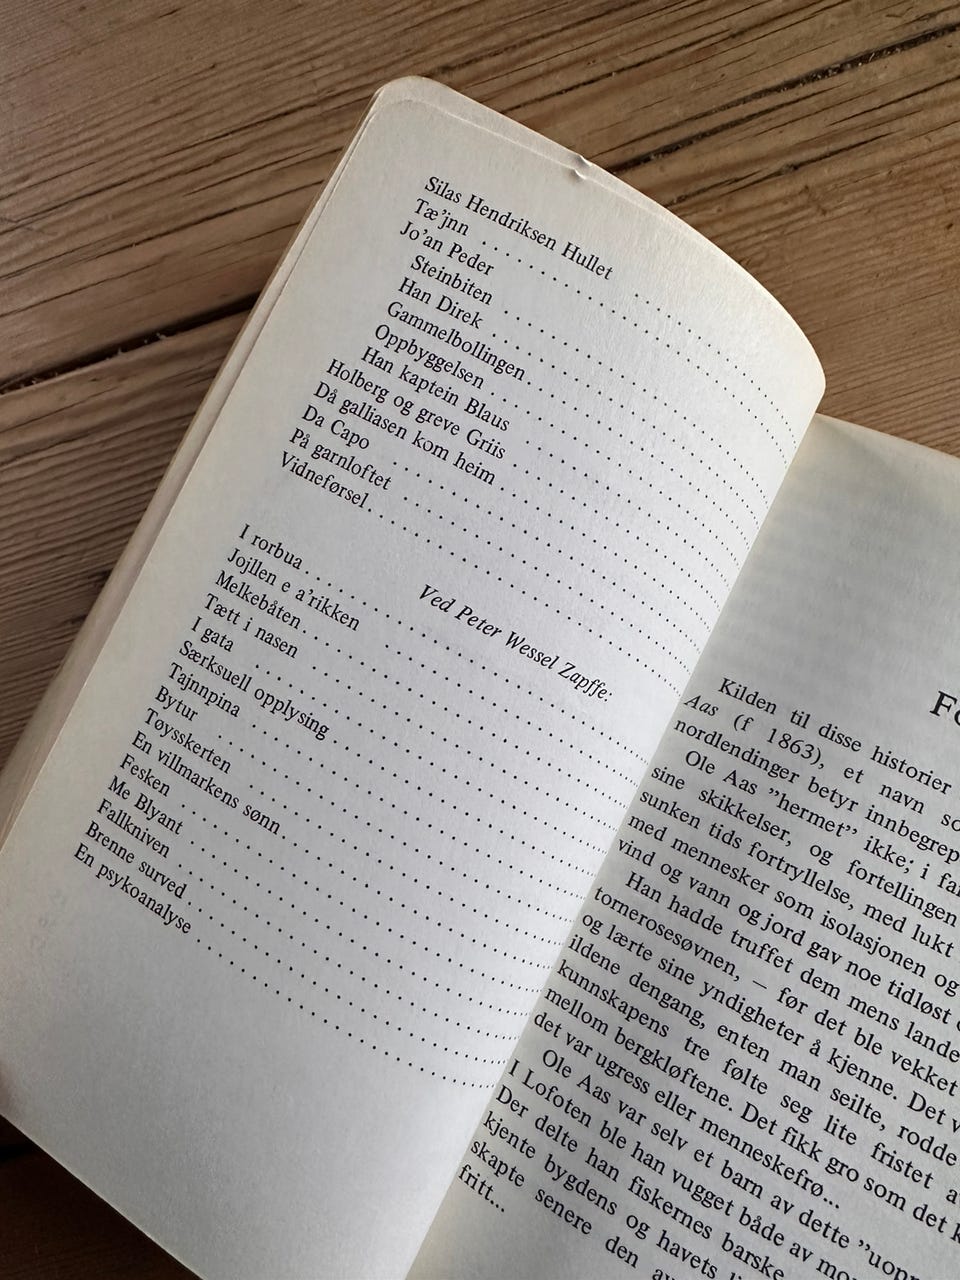 Silas Hendriksen Hullet ....
Tæ'jnn ....
Jo'an Peder ....
Steinbiten ....
Han Direk ....
Gammelbollingen ....
Oppbyggelsen ....
Han kaptein Blaus ....
Holberg og greve Griis ....
Då galliasen kom heim ....
Da Capo ....
På garnloftet ....
Vidneførsel ....
Ved Peter Wessel Zapffe:
I rorbua ....
Jojllen e a'rikken ....
Melkebåten ....
Tætt i nasen ....
I gata ....
Særksuell opplysing ....
Tajnnpina ....
Bytur ....
Tøysskerten ....
En villmarkens sønn ....
Fesken ....
Me Blyant ....
Fallkniven ....
Brenne surved ....
En psykoanalyse ....
Kilden til disse historier
Aas (f 1863), et navn
nordlendinger betyr
Ole Aas "hermet" ikke; i
sine skikkelser, og fortellingen
sunken tids fortryllelse, med lukt
med mennesker som isolasjonen og
vind og vann og jord gav noe tidløst
Han hadde truffet dem mens
tornerosesøvnen, – før det ble vekket
og lærte sine yndigheter å kjenne. Det
ildene dengang, enten man seilte, rodde
kunnskapens tre følte seg lite fristet
mellom bergkløftene. Det fikk gro som det
det var ugress eller menneskefrø...
Ole Aas var selv et barn av dette
I Lofoten ble han vugget både av
Der delte han fiskernes barske
kjente bygdens og havets
skapte senere den
fritt...